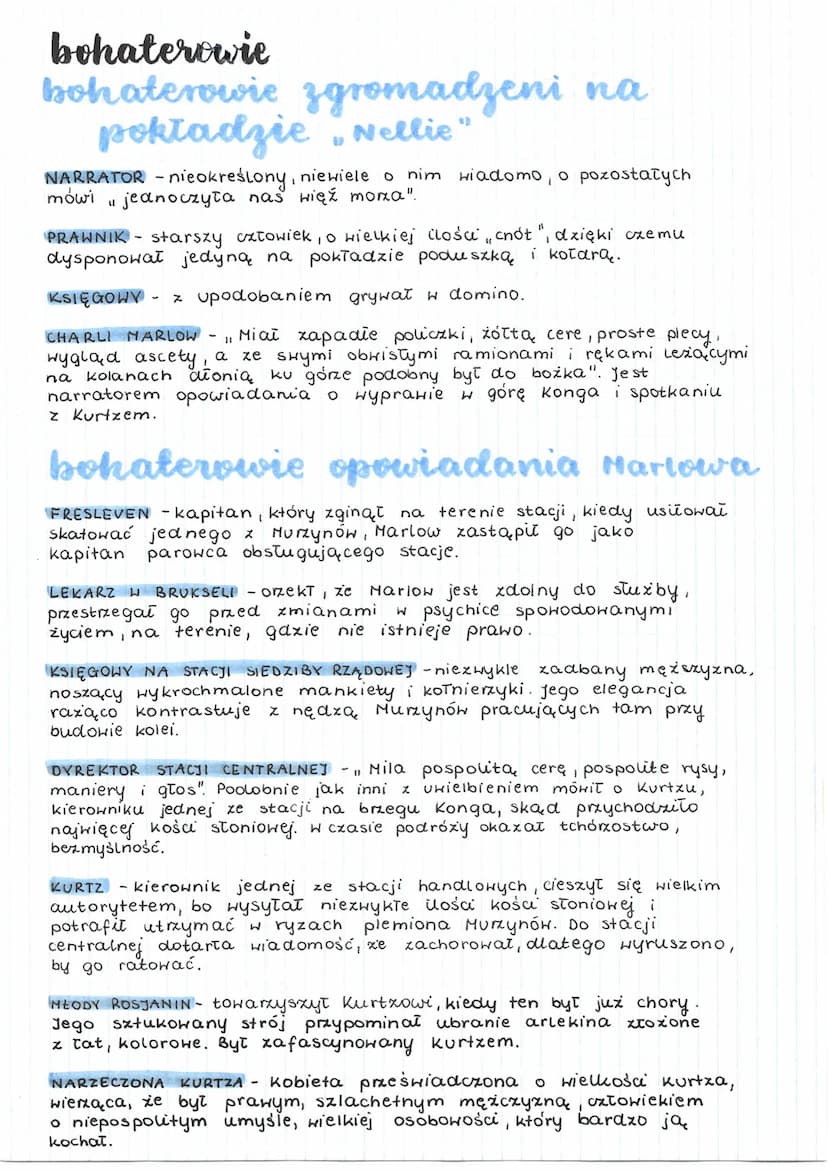 bohaterowie
bohaterowie zgromadzeni na
pokładzie „Nellie"
NARRATOR - nieokreślony, niewiele o nim wiadomo, o pozostałych
mówi „jednoczyła nas więź morza".
PRAWNIK - starszy człowiek, o wielkiej ilości „cnót", dzięki czemu
dysponował jedyną na pokładzie poduszką i kołdrą.
KSIĘGOWY - z upodobaniem grywał w domino.
CHARLI MARLOW - „Miał zapadłe policzki, żółtą cerę, proste plecy,
wygląd ascety, a ze swymi obwisłymi ramionami i rękami leżącymi
na kolanach dłonią ku górze podobny był do bożka". Jest
narratorem opowiadania o wyprawie w górę Konga i spotkaniu
z Kurtzem.
bohaterowie opowiadania Marlowa
FRESLEVEN - kapitan, który zginął na terenie stacji, kiedy usiłował
skatować jednego z Murzynów, Marlow zastąpił go jako
kapitan parowca obsługującego stacje.
LEKARZ W BRUKSELI - orzekł, że Marlow jest zdolny do służby,
przestrzegał go przed zmianami w psychice spowodowanymi
życiem, na terenie, gdzie nie istnieje prawo.
KSIĘGOWY NA STACJI SIEDZIBY RZĄDOWEJ - niezwykle zadbany mężczyzna,
noszący wykrochmalone mankiety i kołnierzyki. Jego elegancja
rażąco kontrastuje z nędzą Murzynów pracujących tam przy
budowie kolei.
DYREKTOR STACJI CENTRALNEJ - „Miła pospolitą cerę, pospolite rysy,
maniery i głos". Podobnie jak inni z uwielbieniem mówił o Kurtzu,
kierowniku jednej ze stacji na brzegu Konga, skąd przychodziło
najwięcej kości słoniowej. W czasie podróży okazał tchórzostwo,
bezmyślność.
KURTZ - kierownik jednej ze stacji handlowych, cieszył się wielkim
autorytetem, bo wysyłał niezwykłe ilości kości słoniowej i
potrafił utrzymać w ryzach plemiona Murzynów. Do stacji
centralnej dotarła wiadomość, że zachorował, dlatego wyruszono,
by go ratować.
MŁODY ROSJANIN - towarzyszył Kurtzowi, kiedy ten był już chory.
Jego sztukowany strój przypominał ubranie arlekina złożone
z łat, kolorowe. Był zafascynowany Kurtzem.
NARZECZONA KURTZA - Kobieta przeświadczona o wielkości Kurtza,
wierząca, że był prawym, szlachetnym mężczyzną, człowiekiem
o niepospolitym umyśle, wielkiej osobowości, który bardzo ją
kochał.